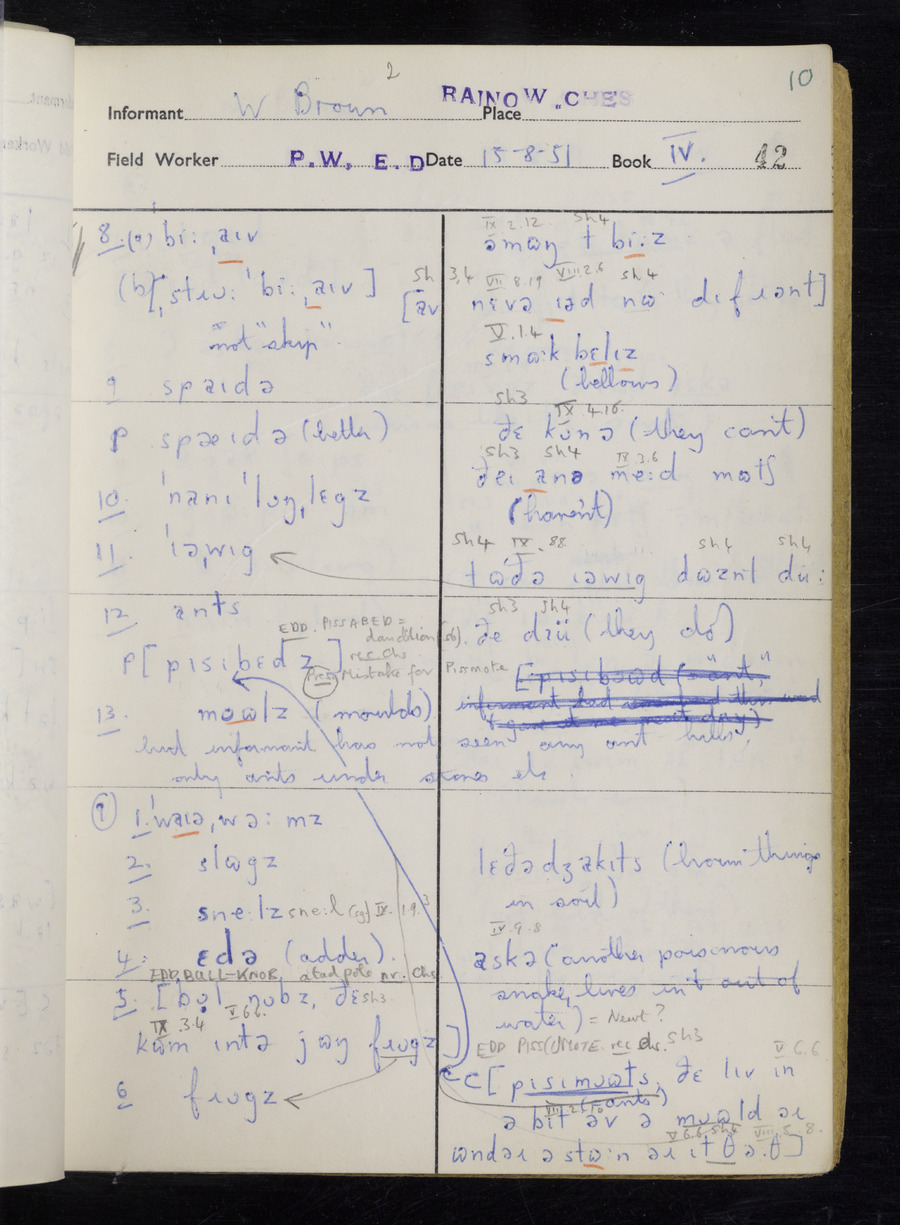 2
10
RAINOW, CHES
Informant W Brown Place
Field Worker P.W. E.D Date 15-8-51 Book IV. 42
8. (a) bi: ˌaɪv
(b) [ˌstɹɷ: ˈbi:ˌaɪv]
not "skip"
9 spaɪdə
p spæɪdə (better)
10. ˈnanɪˈlɒŋˌlɛgz
11. ˈɪəˌwɪg
12 ants
EDD. PISSABED =
dandelion (sb).
rec Chs
p [pɪsɪbɛdz]
Mistake for Pissmote
13. mɔɷlz (moulds)
but informant has not seen any ant hills,
only ants under stones etc.
9 1. ˈwaɪəˌwə:mz
2. slɷgz
3. sne:lz sne:l (sg) IX. 1.9.3
4. ɛdə (adder).
EDD BULL-KNOB, a tadpole nr. Chs
5. [bɷlnɒbz, ðɛ sh3
IX .3.4 V 6 6.
kɷm ɪntə jɷŋ fɹɒgz]
6 fɹɒgz
IX 2.12. Sh4
əmɷŋ t bi:z
sh 3,4 VII 8.19 VIII 2.6 sh4
[av nɛvə ɪəd nɷ dɪfɹənt]
V.1.4
smɷ:k bɛlɪz
(bellows)
sh3 IX 4.16.
ðɛ kʊnə (they can't)
sh3 sh4 IX 3.6
ðeɪ anə me:d mɷtʃ
(haven't)
sh4 IX .88 sh4 sh4
tɷðə ɪəwɪg dɷznt dü:
sh3 sh4
ðe dɪü (they do)
[pɪsɪbɷd (= "ant,"
lɛðədʒakɪts (brown things
in soil)
IV.9.8
askə (another poisonous
snake, lives in & out of
water) = Newt?
EDD PISS(I)MOTE. rec chs. Sh3 V 6.6
C [pɪsɪmɷts, ðɛ lɪv ɪn
(= ants)
ə bɪt əv ə mɷld əɪ
V 6.6 Sh4 VIII.5.8.
ɷndəɪ ə stɷ:n əɪ ɪt